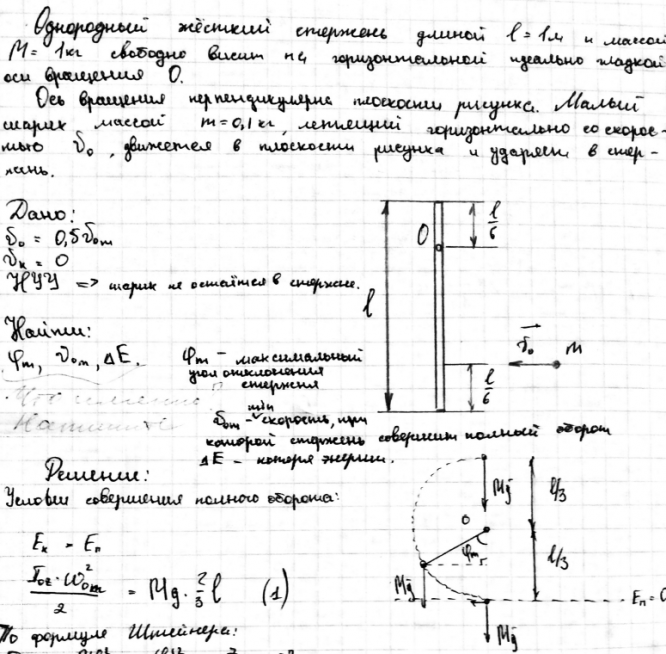 Однородный жёсткий стержень длиной l = 1м и массой
M = 1кг свободно висит на горизонтальной идеально гладкой
оси вращения O.
Ось вращения перпендикулярна плоскости рисунка. Малый
шарик массой m = 0,1 кг, летящий горизонтально со скорос-
тью v₀, движется в плоскости рисунка и ударяет в стер-
жень.
Дано:
v₀ = 0,5 v₀m
vₖ = 0
НУУ => шарик не остаётся в стержне.
Найти:
φm, v₀m, ΔE.
φm - максимальный
угол отклонения
стержня
v₀m - min скорость, при
которой стержень совершит полный оборот
ΔE - потеря энергии.
l
O
l/6
l/6
v₀
m
Решение:
Условие совершения полного оборота:
Eₖ = Eₙ
Ioz · ω₀m² / 2 = Mg · 2/3 l (1)
По формуле Штейнера:
Mg
l/3
O
φm
l/3
Mg
Eₙ = 0
Mg